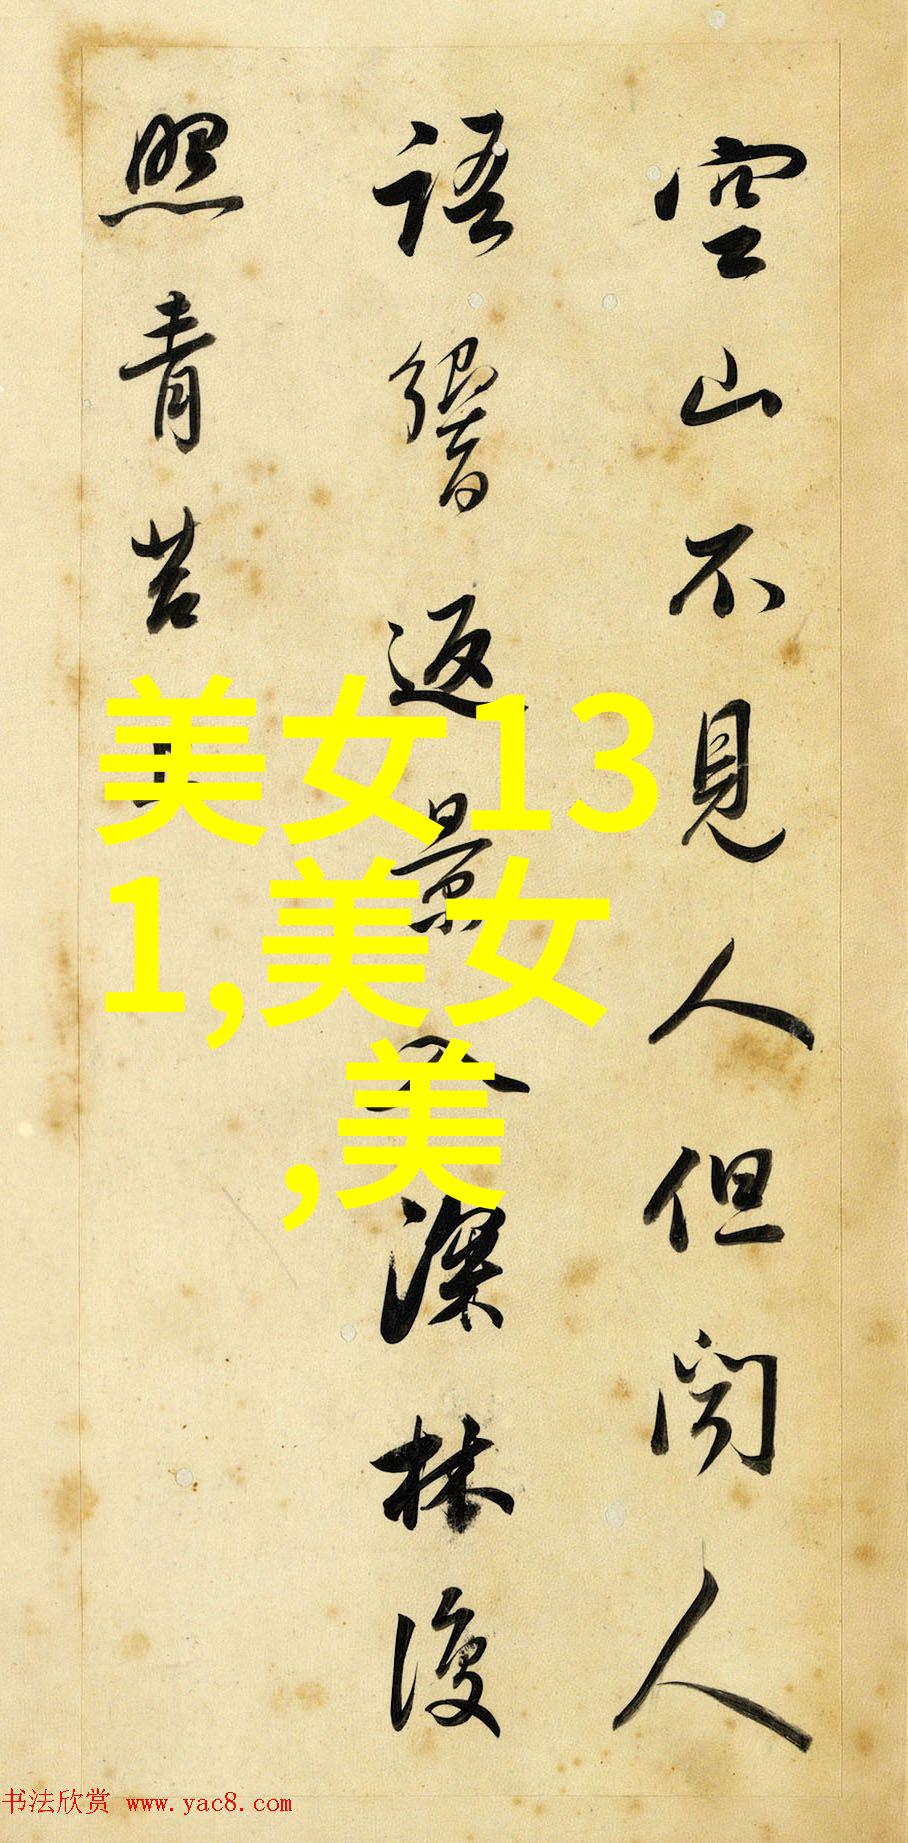 空山不見人但聞人
語響返景入深林復
照青苔上
美女13
1,美女
,美
书法欣赏 www.yac8.com